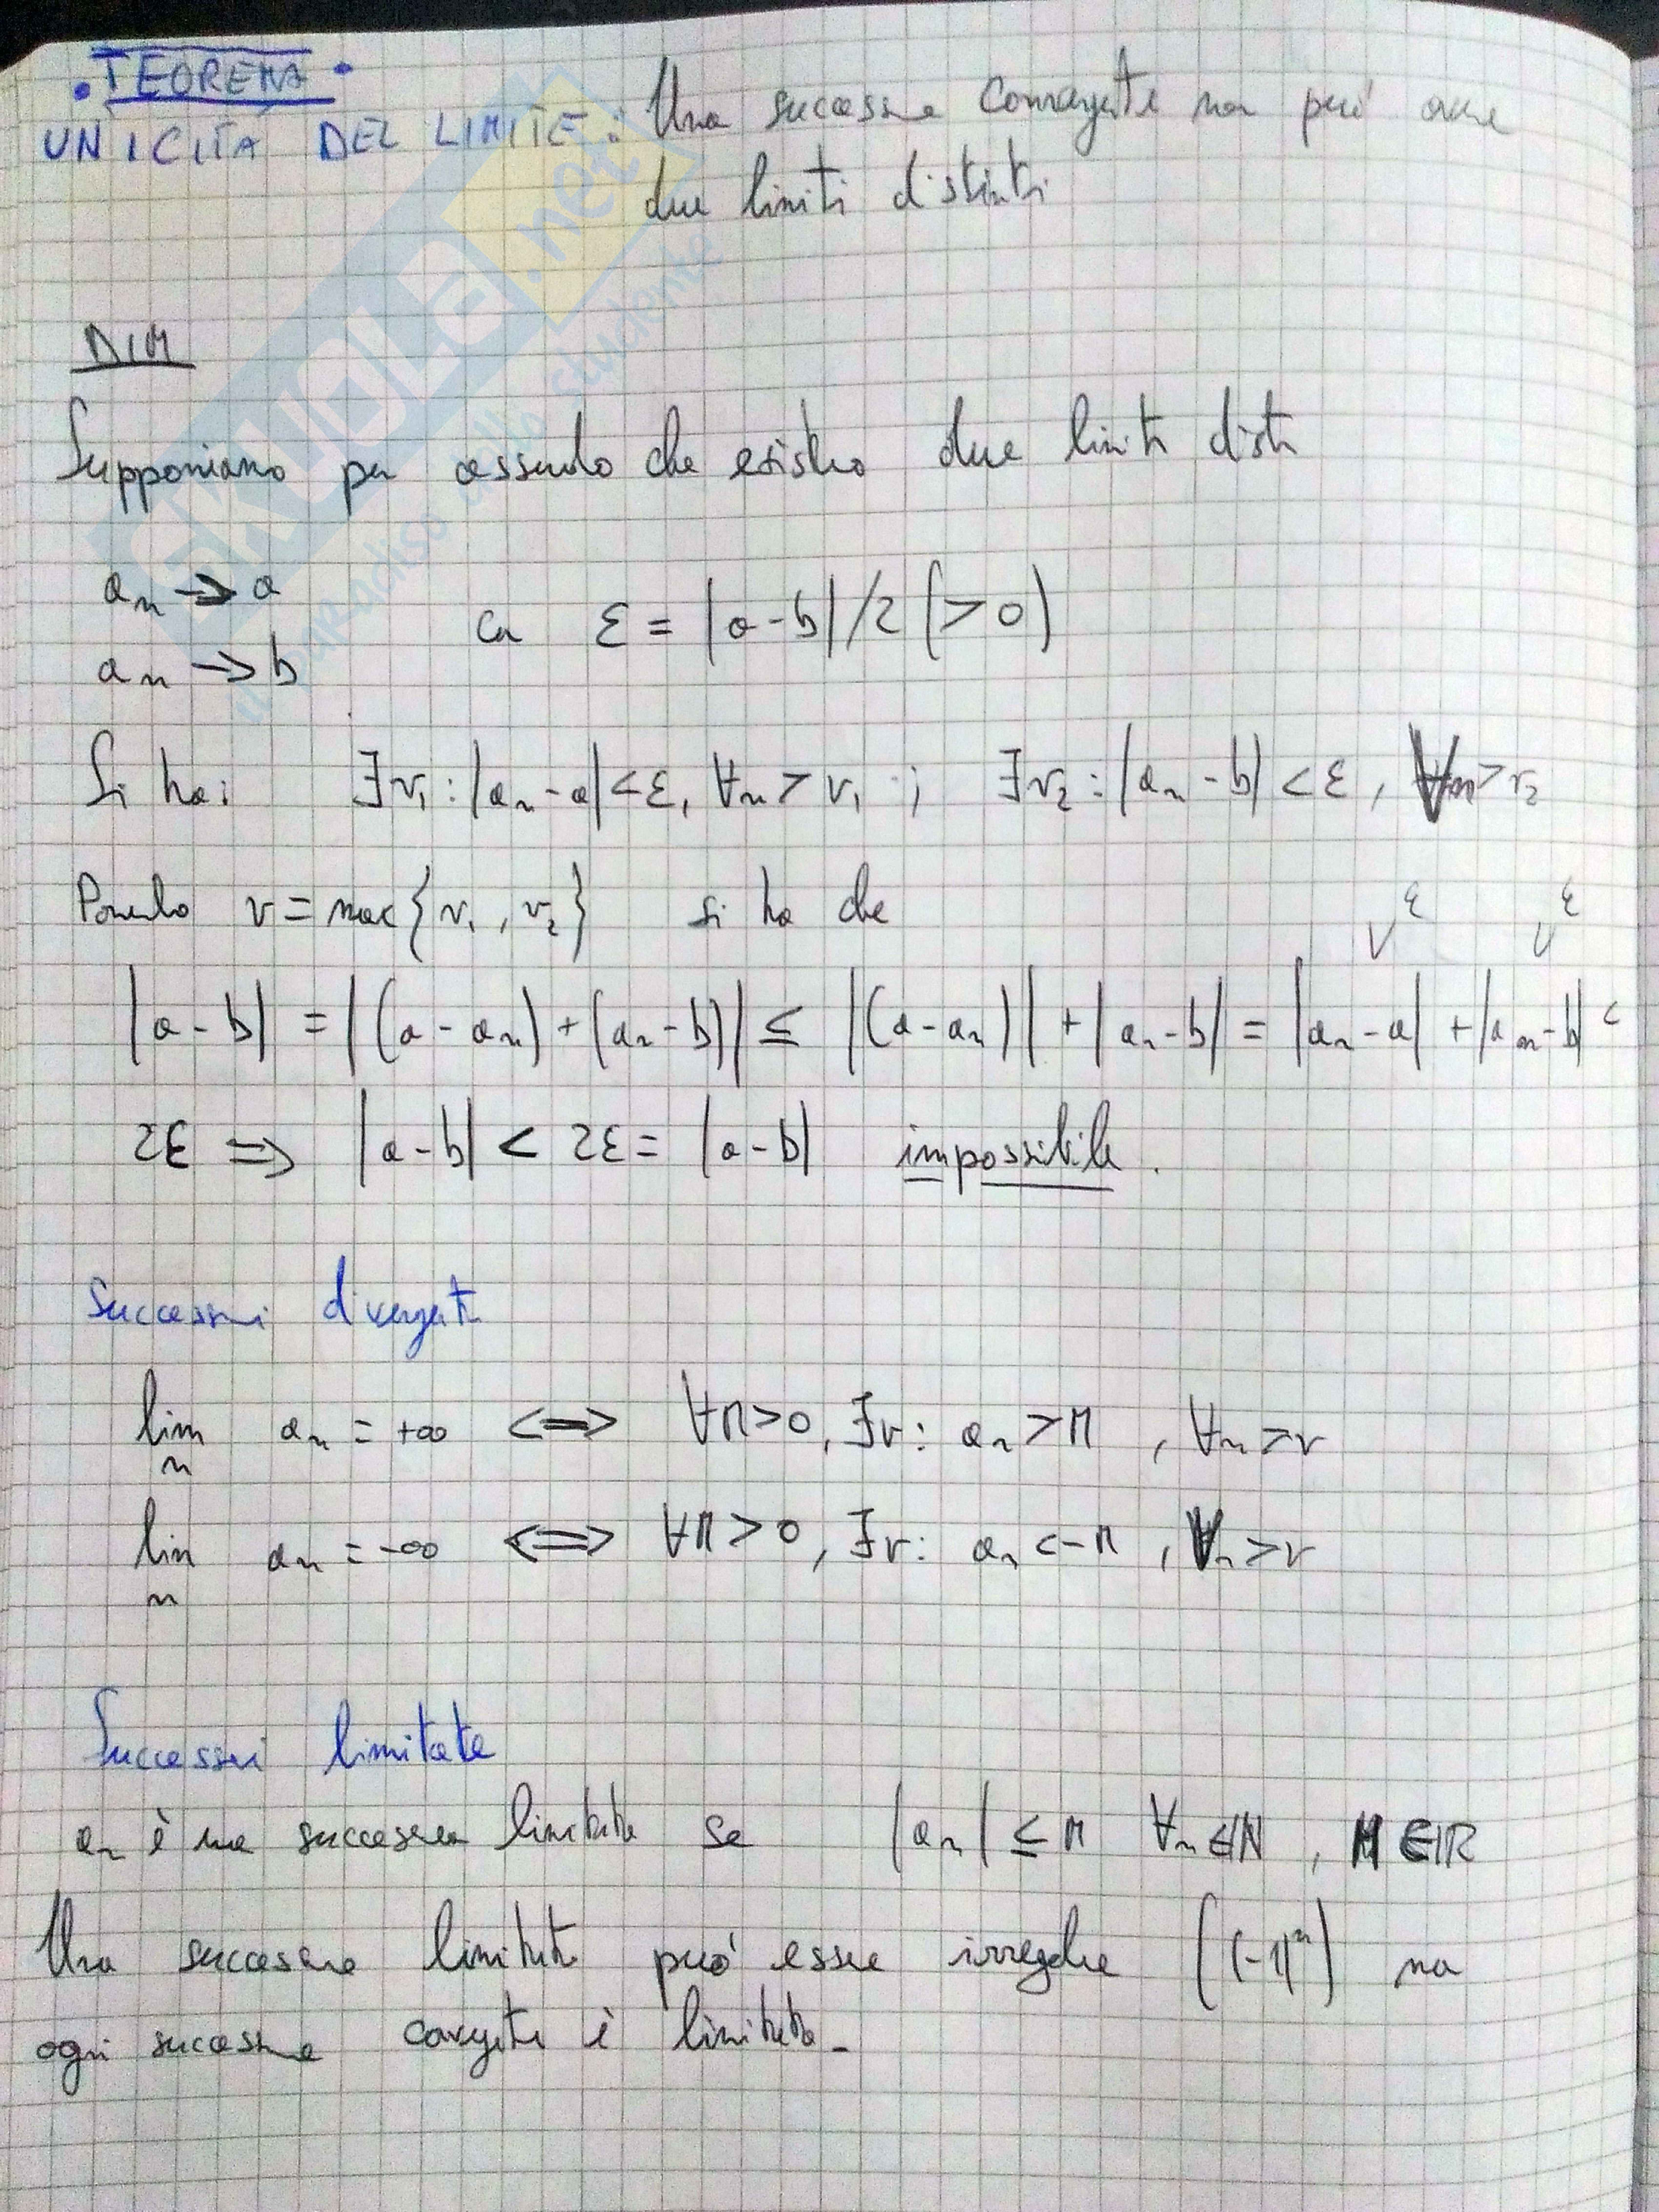 • TEOREMA •
UNICITÀ DEL LIMITE: Una successione convergente non può avere
due limiti distinti
DIM
Supponiamo per assurdo che esistano due limiti distinti
aₙ → a
con ε = |a-b|/2 (>0)
aₙ → b
Si ha: ∃ν₁ : |aₙ-a|<ε, ∀n>ν₁ ; ∃ν₂ : |aₙ-b|<ε, ∀n>ν₂
Ponendo ν = max{ν₁, ν₂} si ha che
|a-b| = |(a-aₙ)+(aₙ-b)| ≤ |(a-aₙ)| + |aₙ-b| = |aₙ-a| + |aₙ-b| <
2ε ⇒ |a-b| < 2ε = |a-b| impossibile.
Successioni divergenti
lim aₙ = +∞ ⇔ ∀M>0, ∃ν: aₙ>M, ∀n>ν
n
lim aₙ = -∞ ⇔ ∀M>0, ∃ν: aₙ<-M, ∀n>ν
n
Successioni limitate
aₙ è una successione limitata se |aₙ| ≤ M ∀n∈ℕ, M∈ℝ
Una successione limitata può essere irregolare ((-1)ⁿ) ma
ogni successione convergente è limitata.
SKUOLA.net
il paradiso dello studente